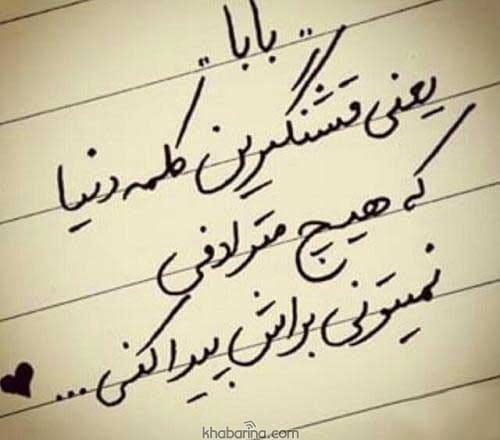 "بابا"
یعنی قشنگترین کلمه دنیا
که هیچ مترادفی
نمیتونی براش پیدا کنی...
khabarina.com